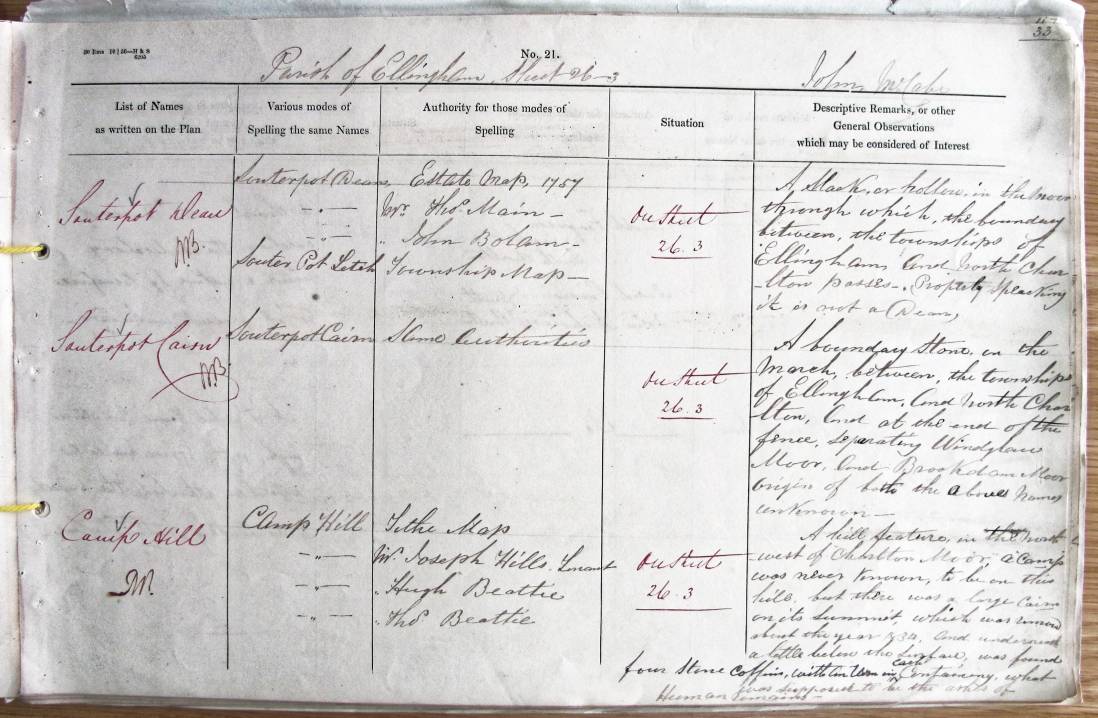 33
No. 21.
Parish of Ellingham, Sheet 26-3
John McCabe
List of Names
as written on the Plan
Various modes of
Spelling the same Names
Authority for those modes of
Spelling
Situation
Descriptive Remarks, or other
General Observations
which may be considered of Interest
Souterpot Dean
Souterpot Dean
Estate Map, 1757
Mr. Thos. Main
" John Bolam
Souter Pot Letch
Township Map
On Sheet
26.3
A Slack, or hollow, in the moor
through which, the boundary
between, the townships of
Ellingham, and North Char-
-lton passes. Properly Speaking
it is not a Dean,
Souterpot Cairn
Souterpot Cairn
Same Authorities
On Sheet
26.3
A boundary Stone, on the
March, between, the townships
of Ellingham, and North Char-
-lton, and at the end of the
fence, separating Windylaw
Moor, and Brockdam Moor
Origin of both the above Names
unknown
Camp Hill
Camp Hill
Tithe Map
Mr. Joseph Hills. Tenant
" Hugh Beattie
" Thos. Beattie
On Sheet
26.3
A hill feature, in the north
west of Charlton Moor, a Camp
was never Known, to be on this
hill, but there was a large Cairn
on its Summit, which was removed
about the year 1834, and underneath
a little below the Surface, was found
four Stone Coffins, with an Urn in each Containing, what
was supposed to be the ashes of
Human remains